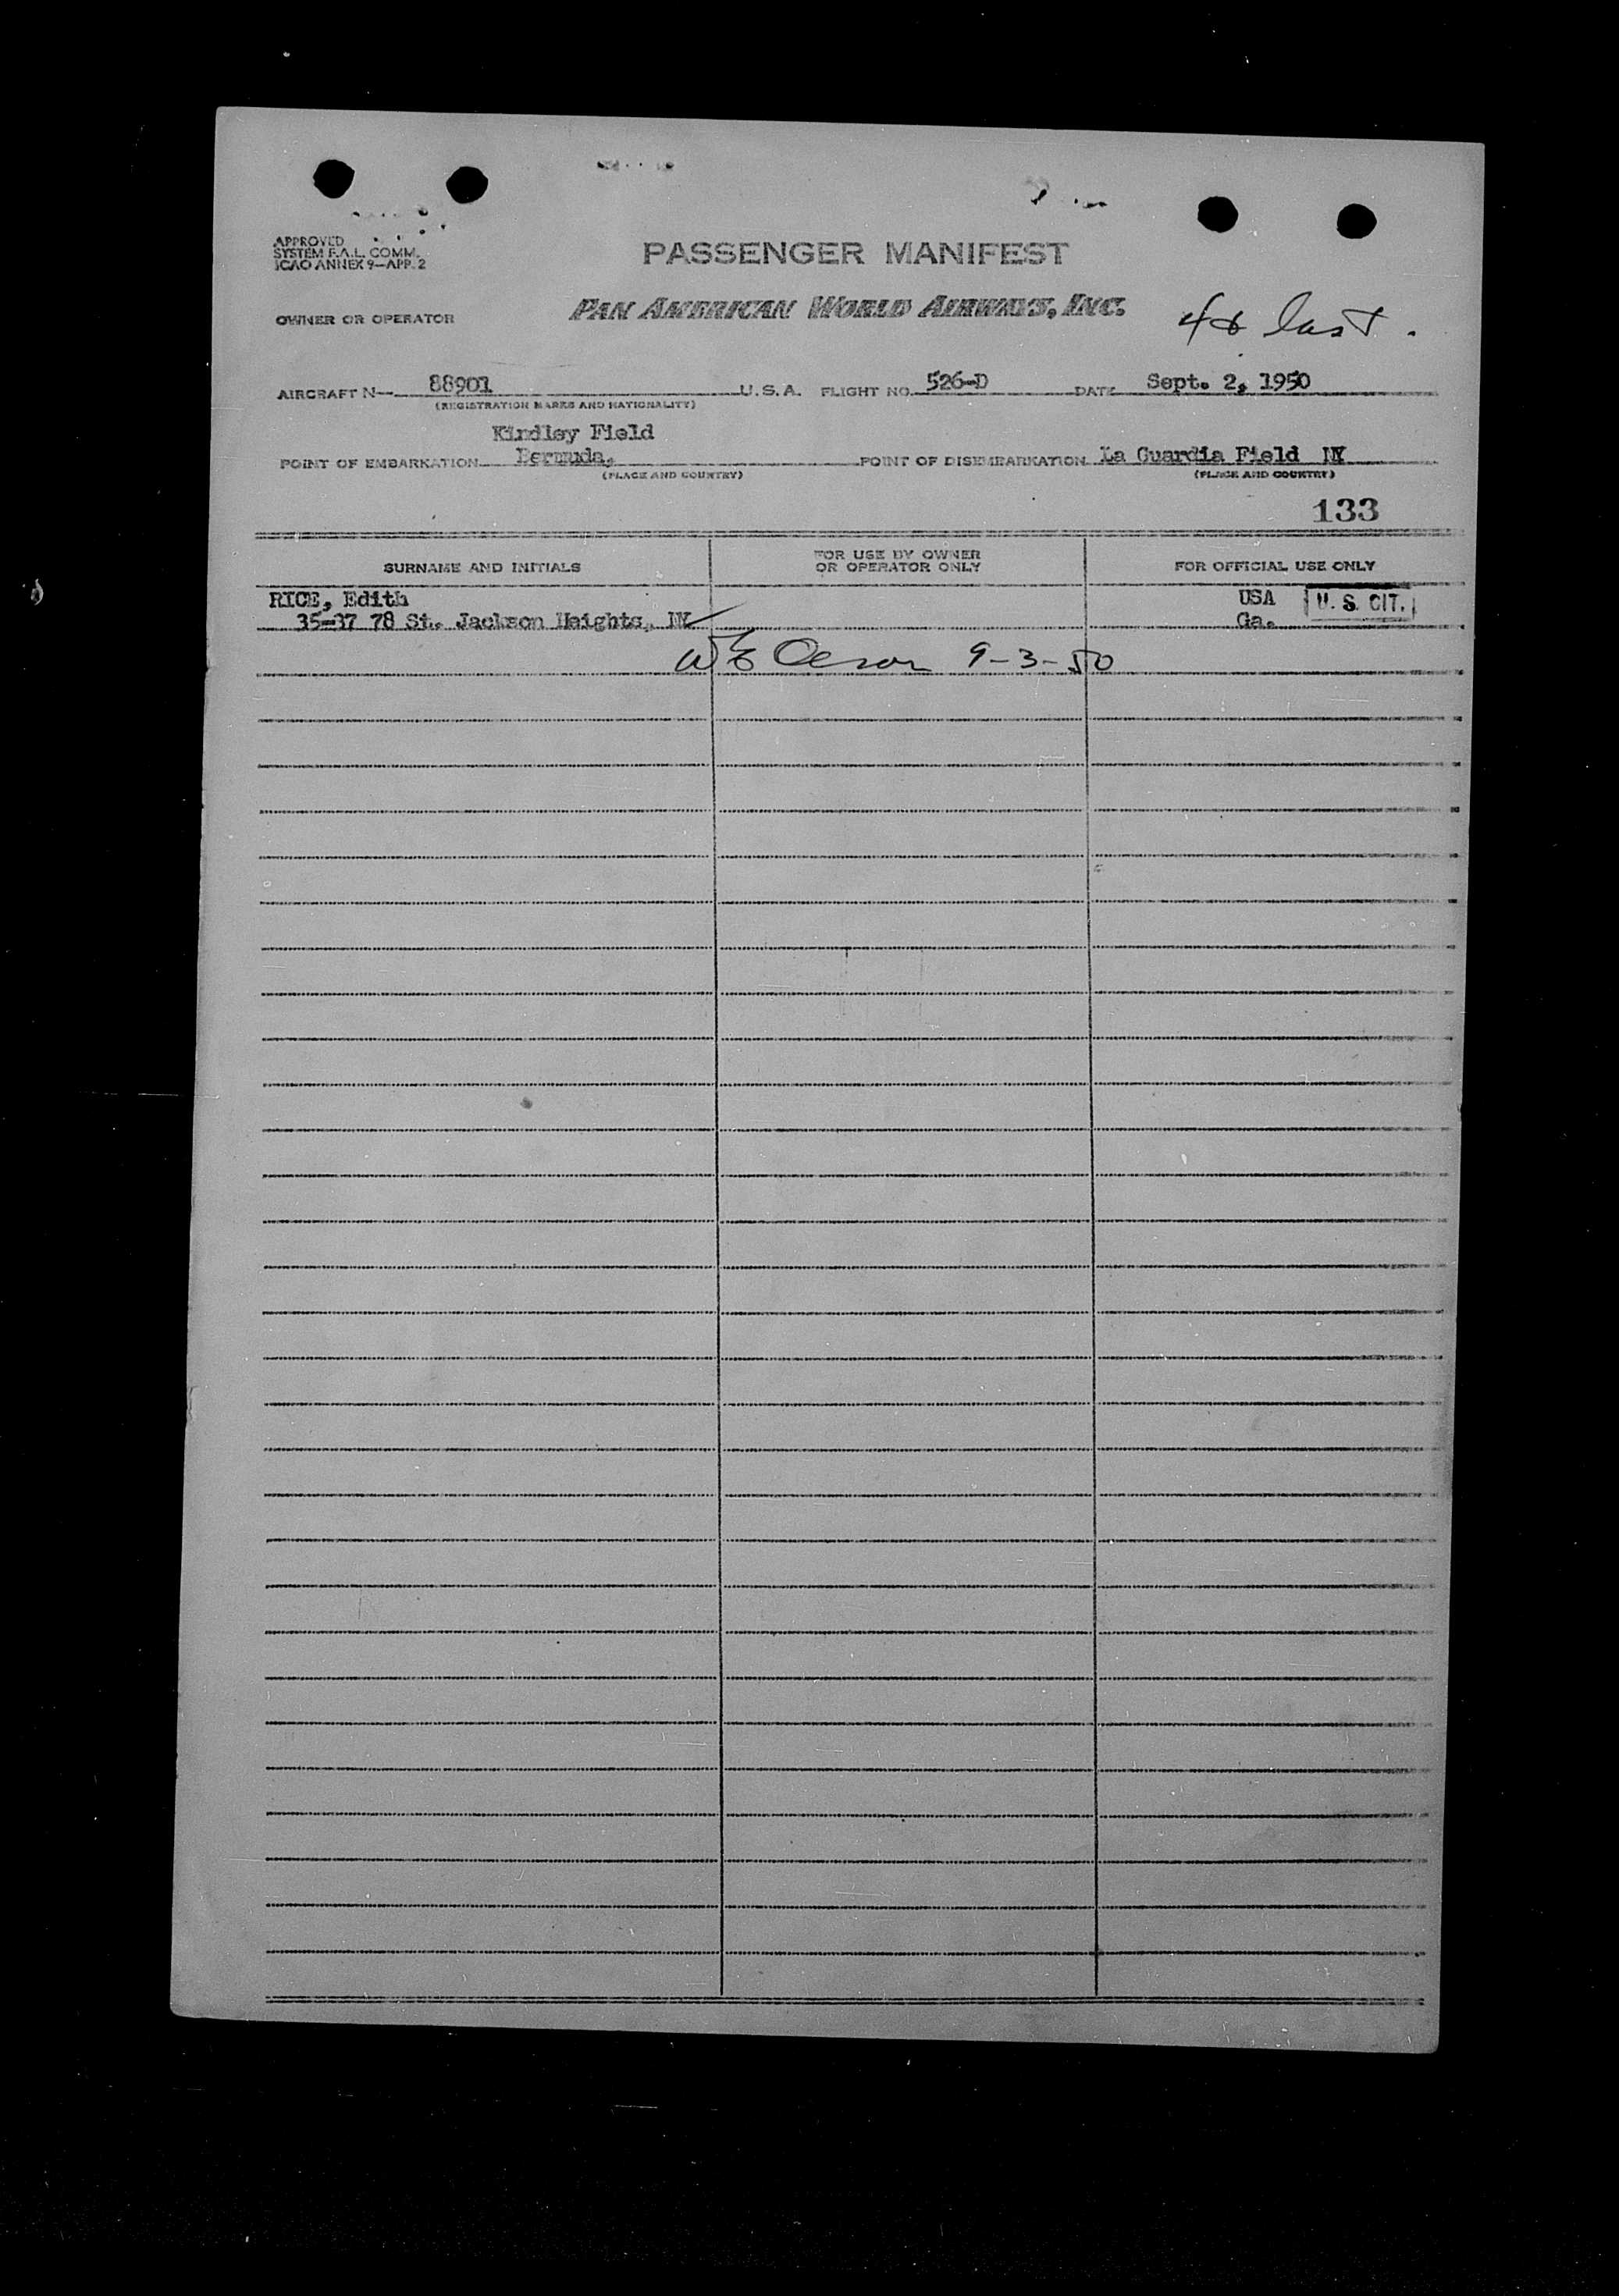 APPROVED
SYSTEM F.A.L. COMM.
ICAO ANNEX 9—APP. 2
PASSENGER MANIFEST
OWNER OR OPERATOR PAN AMERICAN WORLD AIRWAYS, INC.
4 & last.
AIRCRAFT N— 88901 U.S.A. FLIGHT NO. 526-D DATE Sept. 2, 1950
(REGISTRATION MARKS AND NATIONALITY)
Kindley Field
POINT OF EMBARKATION Bermuda, POINT OF DISEMBARKATION La Guardia Field NY
(PLACE AND COUNTRY) (PLACE AND COUNTRY)
133
SURNAME AND INITIALS FOR USE BY OWNER OR OPERATOR ONLY FOR OFFICIAL USE ONLY
RICE, Edith USA U. S. CIT.
35-37 78 St. Jackson Heights, NY Ga.
9-3-50